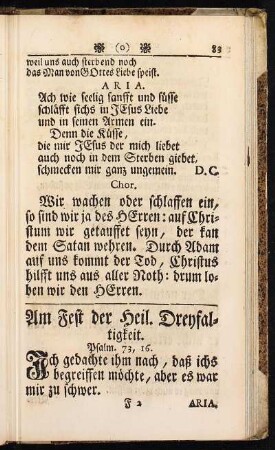 (o) 83
weil uns auch sterbend noch
das Man von GOttes Liebe speist.
ARIA.
Ach wie seelig sanfft und süsse
schläfft sichs in JEsus Liebe
und in seinen Armen ein.
Denn die Küsse,
die mir JEsus der mich liebet
auch noch in dem Sterben giebet,
schmecken mir ganz ungemein. D.C.
Chor.
Wir wachen oder schlaffen ein,
so sind wir ja des HErren: auf Chri-
stum wir getauffet seyn, der kan
dem Satan wehren. Durch Adam
auf uns kommt der Tod, Christus
hilfft uns aus aller Noth: drum lo-
ben wir den HErren.
Am Fest der Heil. Dreyfal-
tigkeit.
Psalm. 73, 16.
Jch gedachte ihm nach, daß ichs
begreiffen möchte, aber es war
mir zu schwer.
F 2 ARIA.